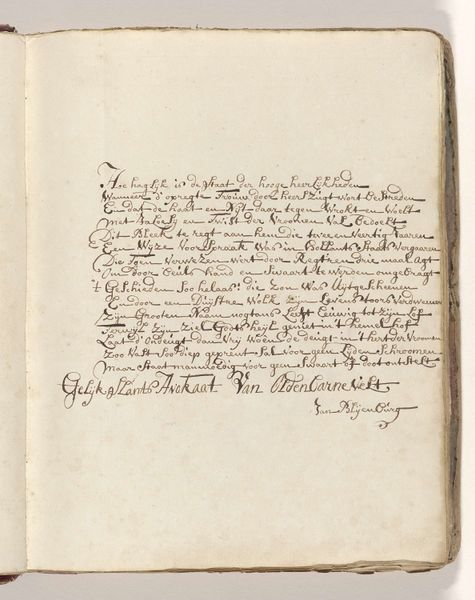 Hoe haglijk is de staat der hooge heerlijkheden
Wanneer d'opregte Trouw door heerszugt wort bestreden
En dat de haat en Nijt daar tegen wrokt en woelt
Met valsheyt en Twist der Vroomen val bedoelt
Dit Bleek te regt aan hem die twee en vertig Jaren
Een Wyze Voorspraak was in Hollants Staats vergaaren
Die Toen verwezen wert door Regtren driemaal agt
Om door beuls hand en swaart te werden omgebragt
't Geschieden soo helaas! die zon was uijtgescheenen
En door een Duijstre Wolk zijn Levens Noors verdweenen
Zijn Grooten Naam nogtans Leeft Eeuwig tot zijn Lof
Terwijl zijn ziel Godts heyl geniet in 't hemel hof
Laat d'ondeugt dan vrij woen de deugt in 't hert der vroomen
Zoo vast soo diep geprent sal voor geen Lijden schroomen
Maar staat manmoedig voor geen swaart of doot ontstelt
Gelijk 's Lants Avokaat Van Oldenbarnevelt
Jan Blijenburg